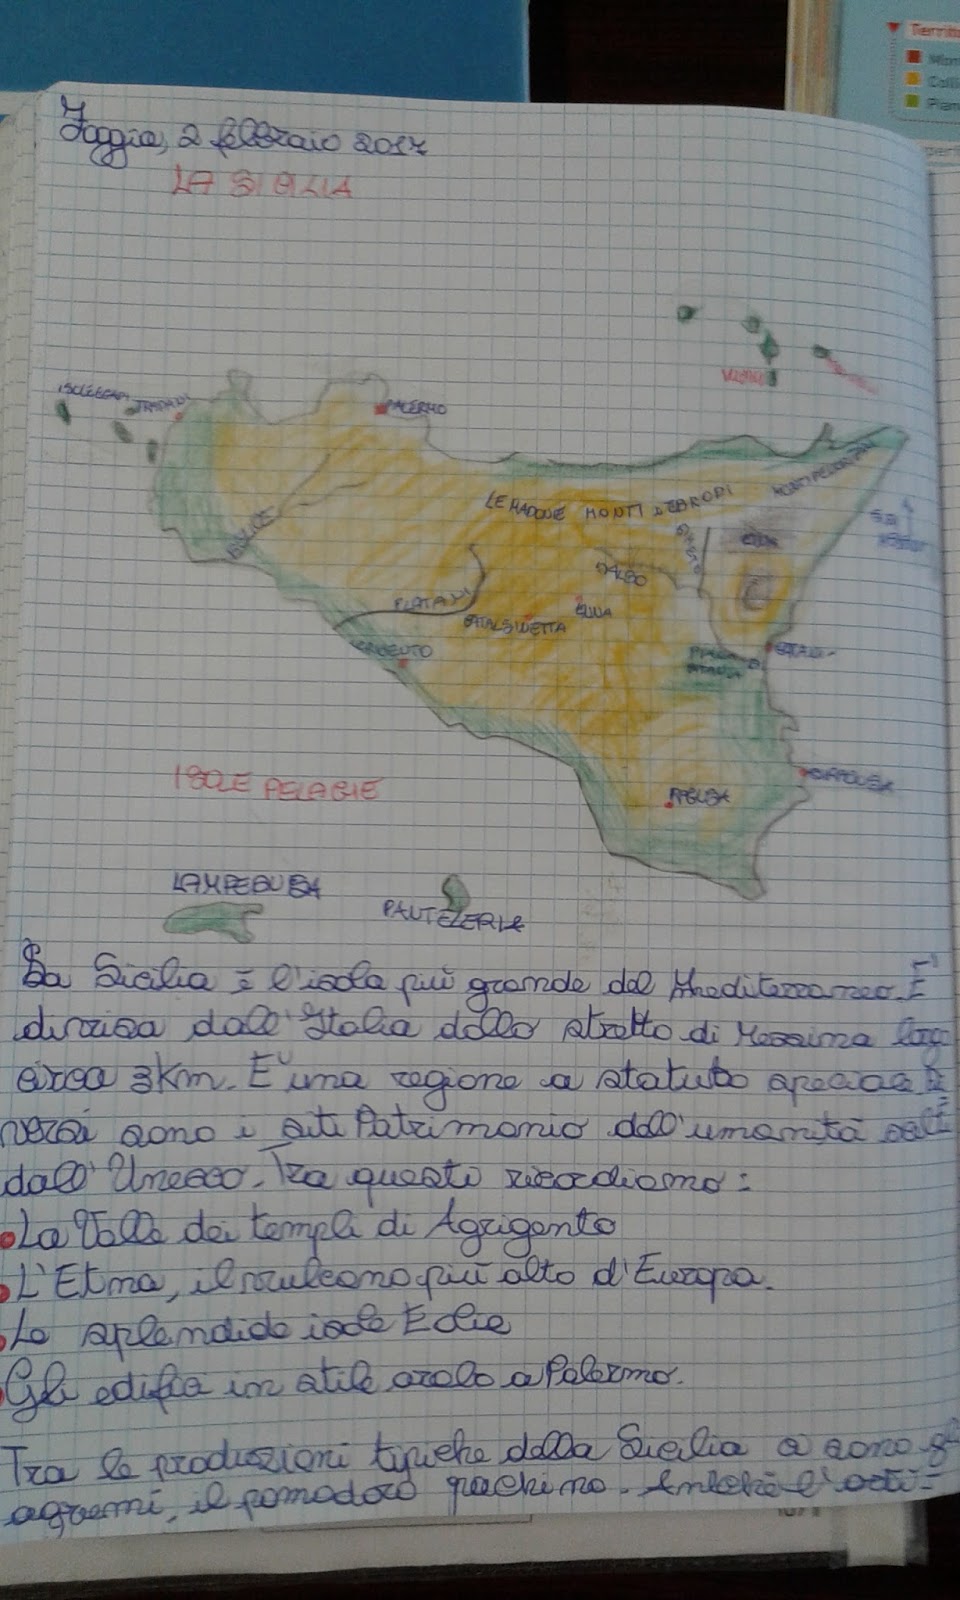 Foggia, 2 febbraio 2017
LA SICILIA
ISOLE EGADI
TRAPANI
PALERMO
LE MADONIE MONTI NEBRODI
MONTI PELORITANI
BELICE
SIMETO
ETNA
PLATANI
CALTALSINETTA
ENNA
AGRIGENTO
PIANA DI
CATANIA
CATANIA
SIRACUSA
RAGUSA
ISOLE PELAGIE
LAMPEDUSA
PANTELERIA
La Sicilia è l'isola più grande del Mediterraneo. È
divisa dall'Italia dallo stretto di Messina largo
circa 3km. E' una regione a statuto speciale
versi sono i siti Patrimonio dell'umanità
dall'Unesco. Tra questi ricordiamo:
La Valle dei templi di Agrigento
L'Etna, il vulcano più alto d'Europa.
Le splendide isole Eolie
Gli edifici in stile arabo a Palermo.
Tra le produzioni tipiche della Sicilia ci sono gli
agrumi, il pomodoro pachino. Anche l'arti-